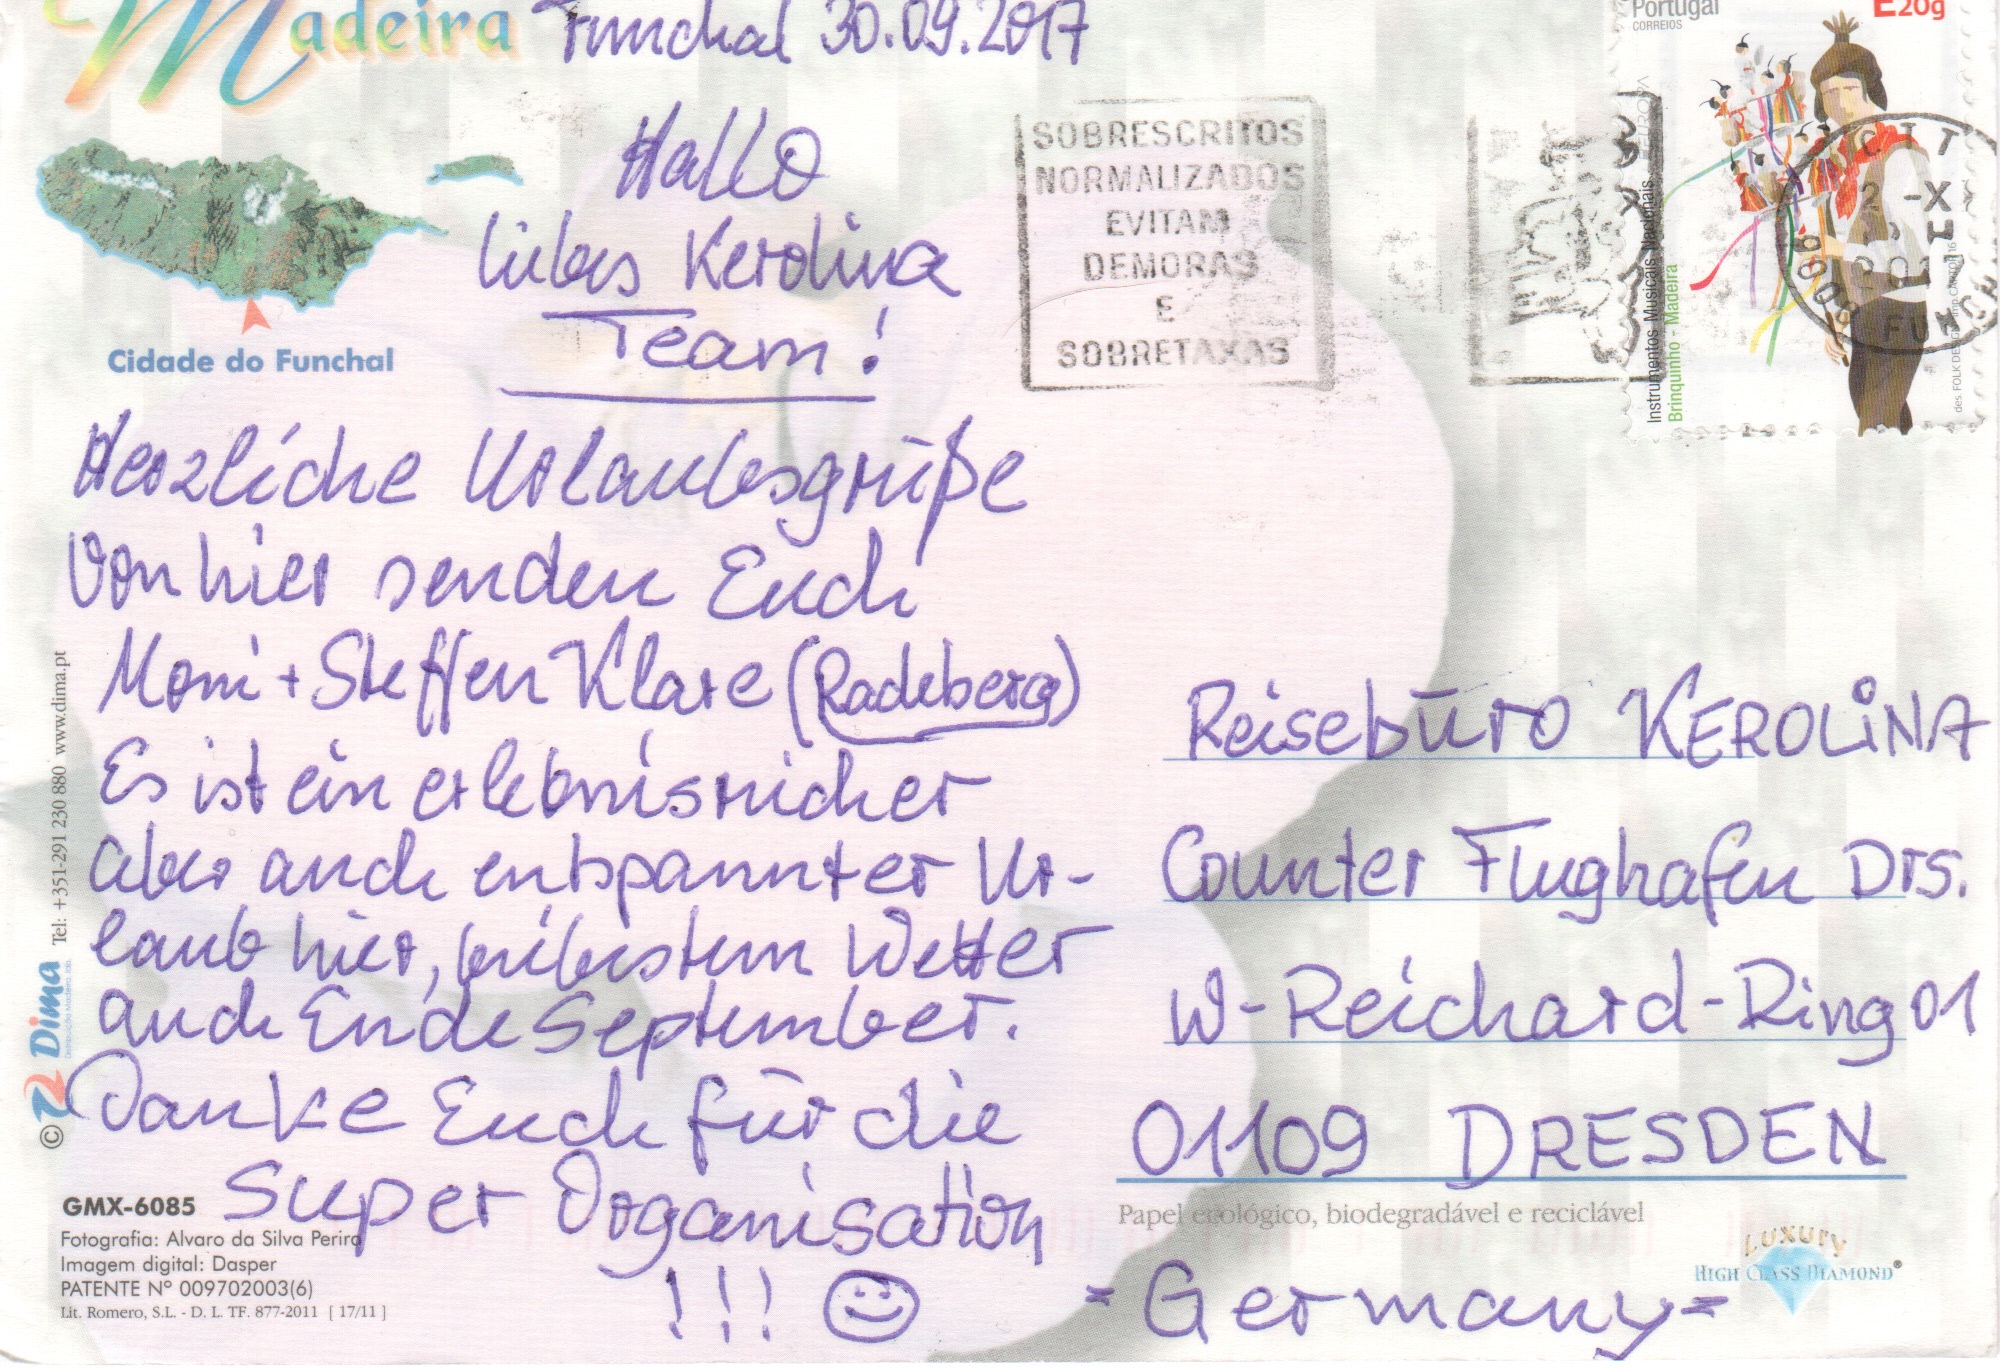 Madeira
Funchal 30.09.2017
Hallo
liebes Kerolina
Team!
Cidade do Funchal
Herzliche Urlaubsgrüße
von hier senden Euch
Moni + Steffen Klare (Radeberg)
Es ist ein erlebnisreicher
aber auch entspannter Ur-
laub hier, bei bestem Wetter
auch Ende September.
Danke Euch für die
super Organisation
!!! ☺
SOBRESCRITOS
NORMALIZADOS
EVITAM
DEMORAS
E
SOBRETAXAS
Portugal
CORREIOS
E20g
EUROPA
Instrumentos Musicais Nacionais
Brinquinho - Madeira
CTT
2-X
2017
Reisebüro KEROLINA
Counter Flughafen Drs.
W-Reichard-Ring 01
01109 DRESDEN
Papel ecológico, biodegradável e reciclável
= Germany =
LUXURY
HIGH CLASS DIAMOND®
© Dima Tel: +351-291 230 880 www.dima.pt
GMX-6085
Fotografia: Alvaro da Silva Perira
Imagem digital: Dasper
PATENTE Nº 009702003(6)
Lit. Romero, S.L. - D. L. TF. 877-2011 [ 17/11 ]